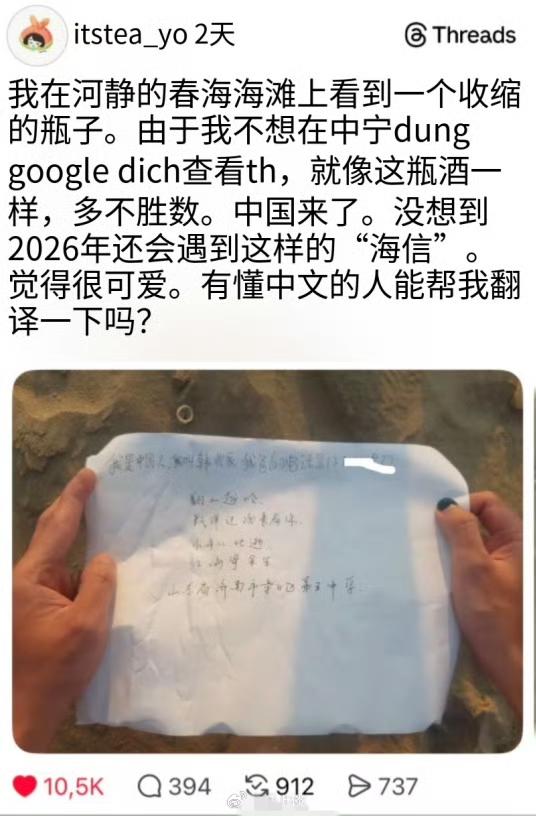 itstea_yo 2天
Threads
我在河静的春海海滩上看到一个收缩
的瓶子。由于我不想在中宁dung
google dich查看th，就像这瓶酒一
样，多不胜数。中国来了。没想到
2026年还会遇到这样的“海信”。
觉得很可爱。有懂中文的人能帮我翻
译一下吗？
我是中国人,我叫韩
翻山越岭,
山东省济南市章丘第五中学.
10,5K
394
912
737